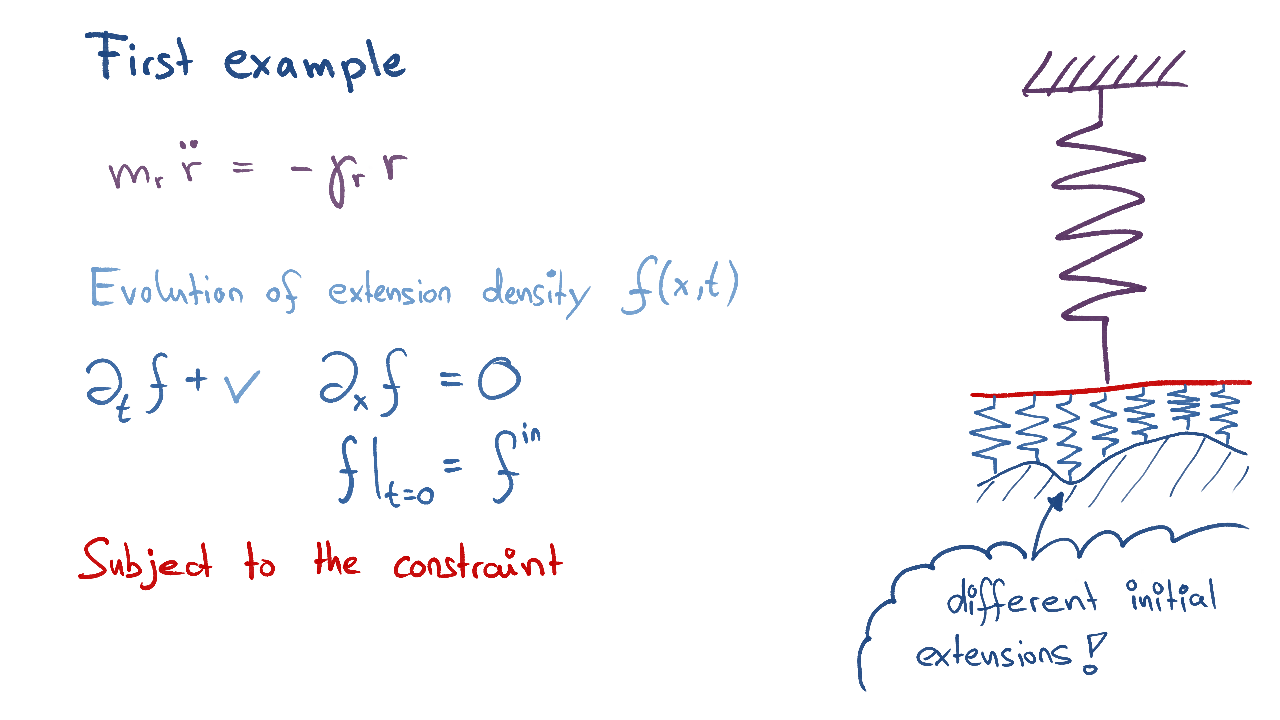 First example
mᵣ r̈ = - γᵣ r
Evolution of extension density f(x,t)
∂ₜ f + v ∂ₓ f = 0
f|ₜ₌₀ = fⁱⁿ
Subject to the constraint
different initial
extensions!